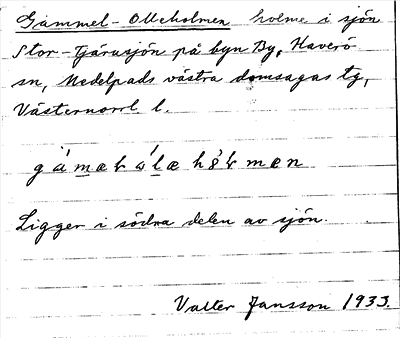 Gammel-Olleholmen holme i sjön
Stor-Tjärusjön på byn By, Haverö
sn, Medelpads västra domsagas tg,
Västernorrl. l.
Ligger i södra delen av sjön.
Valter Jansson 1933.